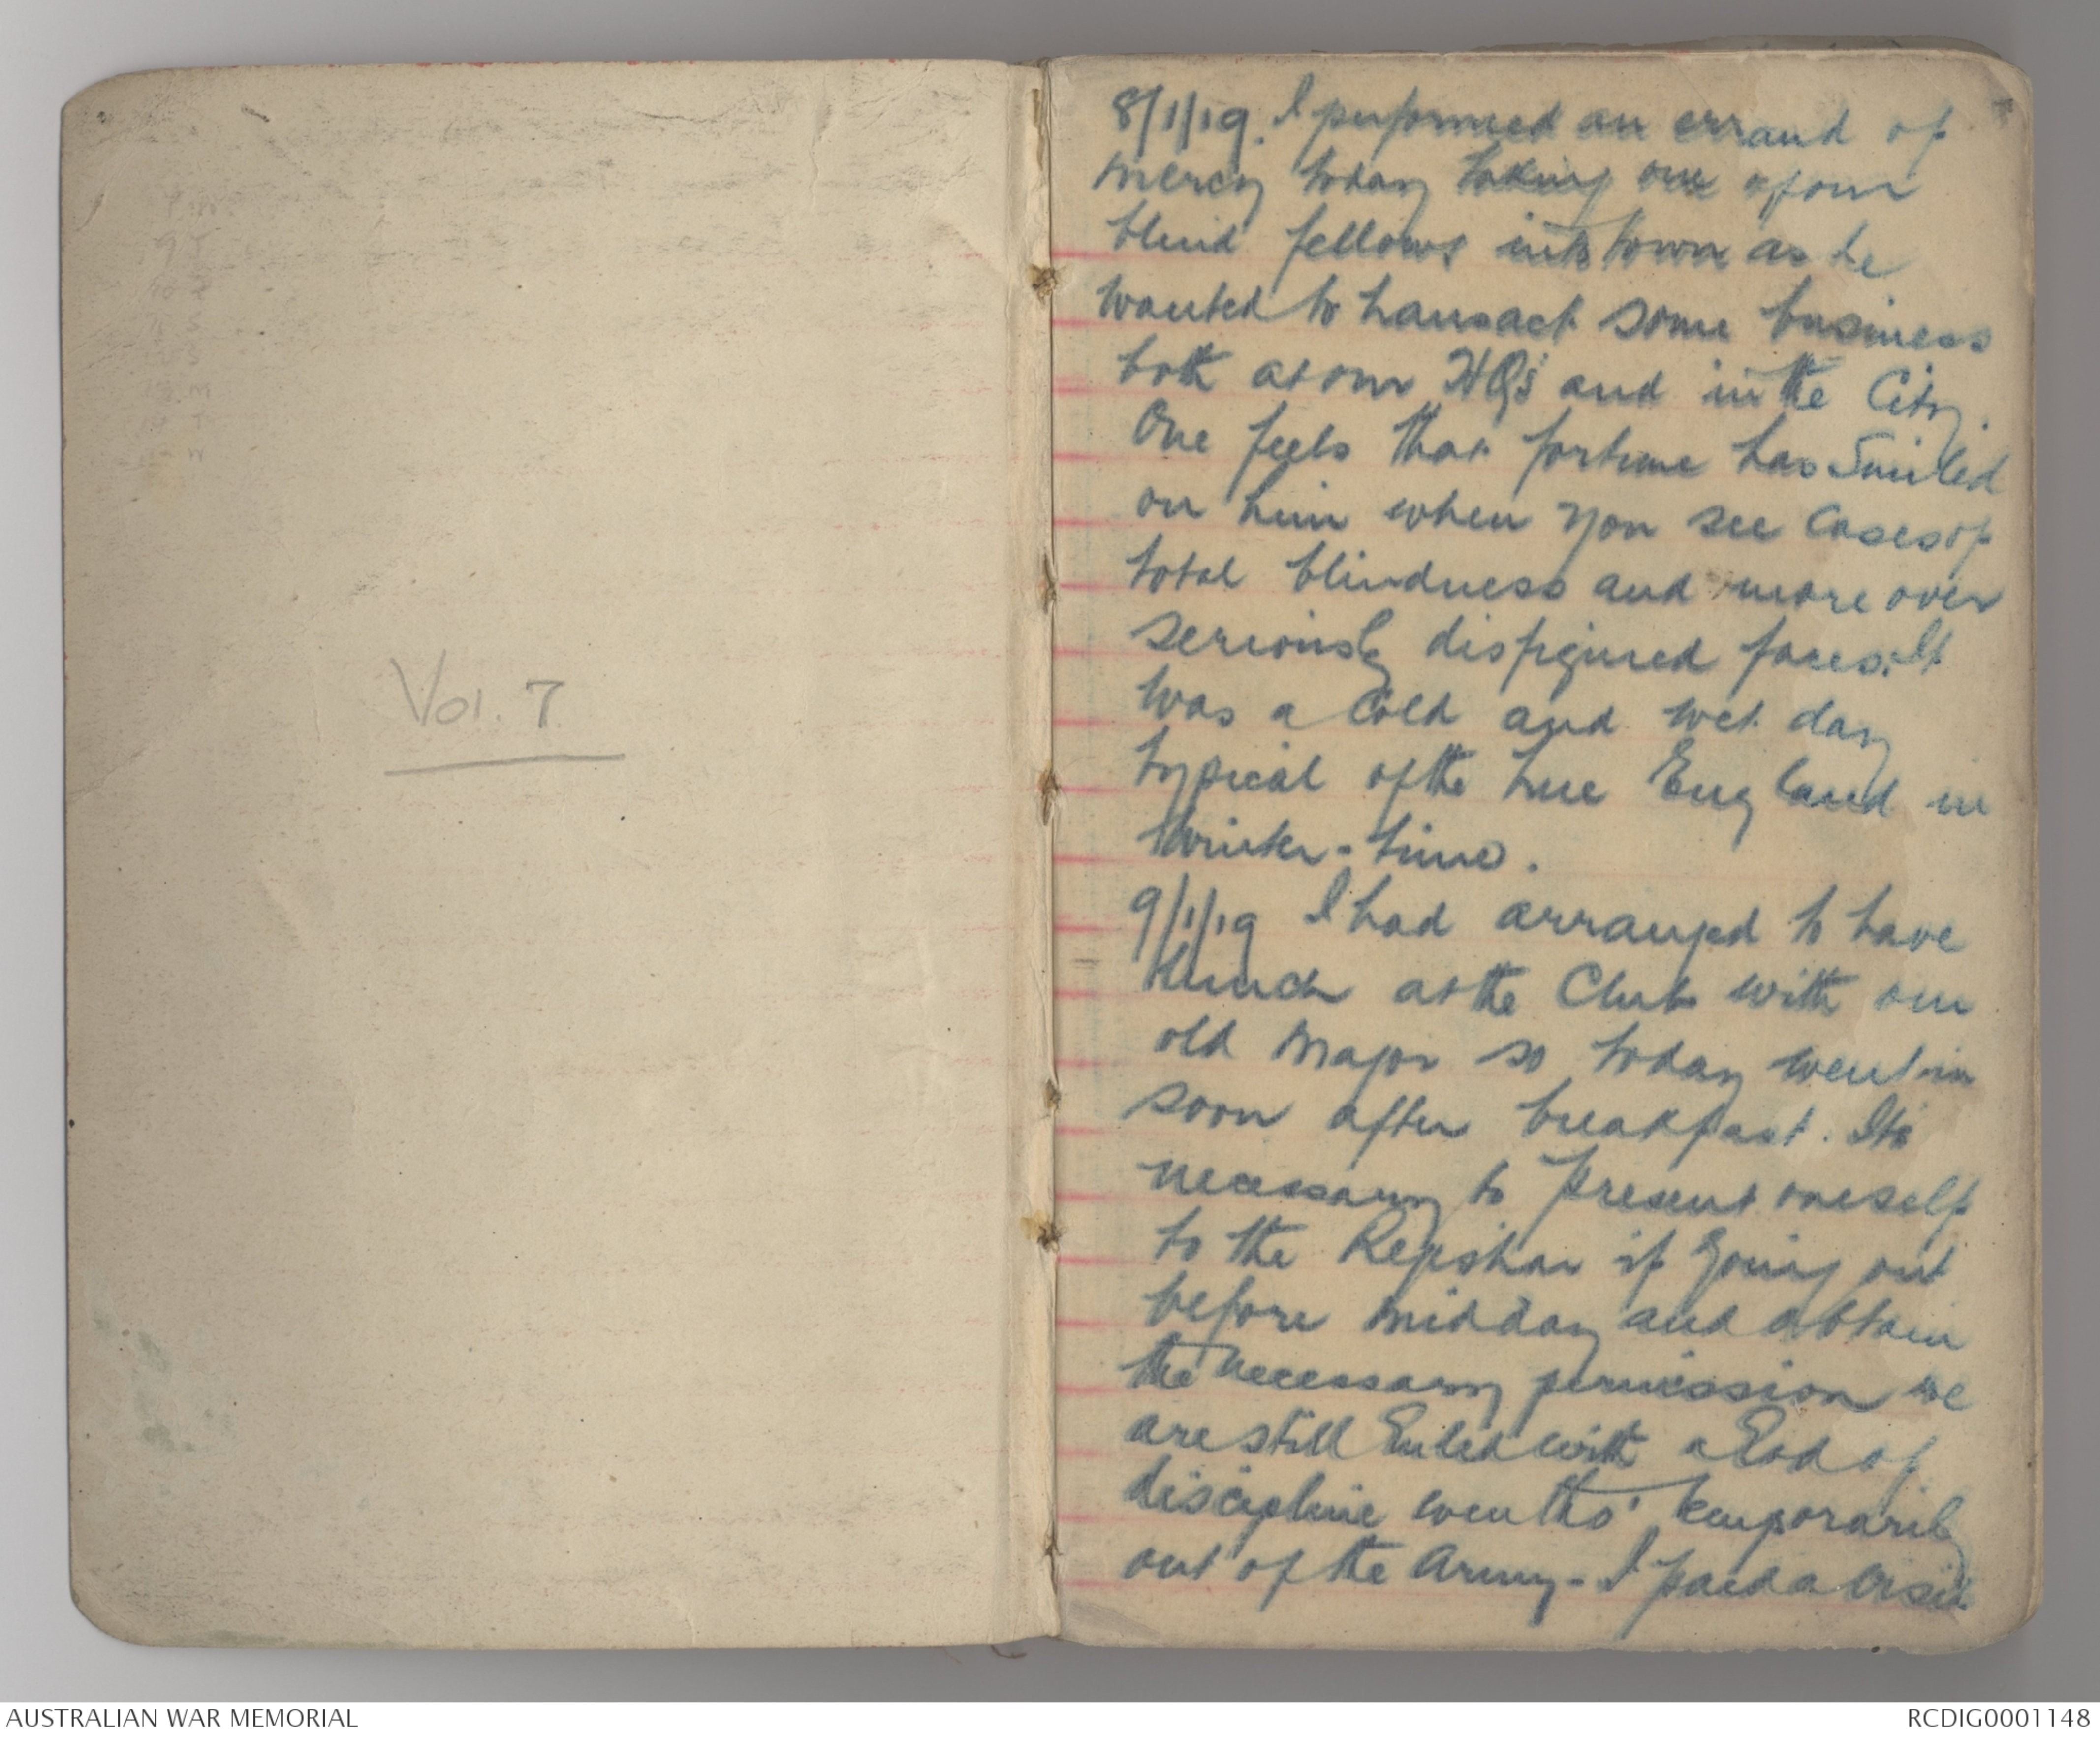 Vol. 7
8/1/19. I performed an errand of
mercy today taking one of our
blind fellows into town as he
wanted to transact some business
both at our HQs and in the City.
One feels that fortune has smiled
on him when you see cases of
total blindness and more over
seriously disfigured faces. It
was a cold and wet day
typical of the true England in
Winter-time.
9/1/19 I had arranged to have
lunch at the Club with our
old Major so today went in
soon after breakfast. Its
necessary to present oneself
to the Registrar if going out
before midday and obtain
the necessary permission we
are still ruled with a Rod of
discipline even tho' temporarily
out of the Army - I paid a visit
AUSTRALIAN WAR MEMORIAL
RCDIG0001148